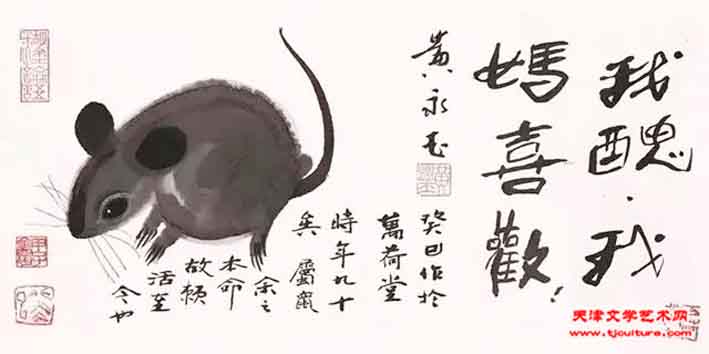 我醜·我
媽喜歡!
黄永玉
癸巳作於
萬荷堂
時年九十
矣 屬鼠
余之
本命
故賴
活至
今也
天津文学艺术网
www.tjculture.com